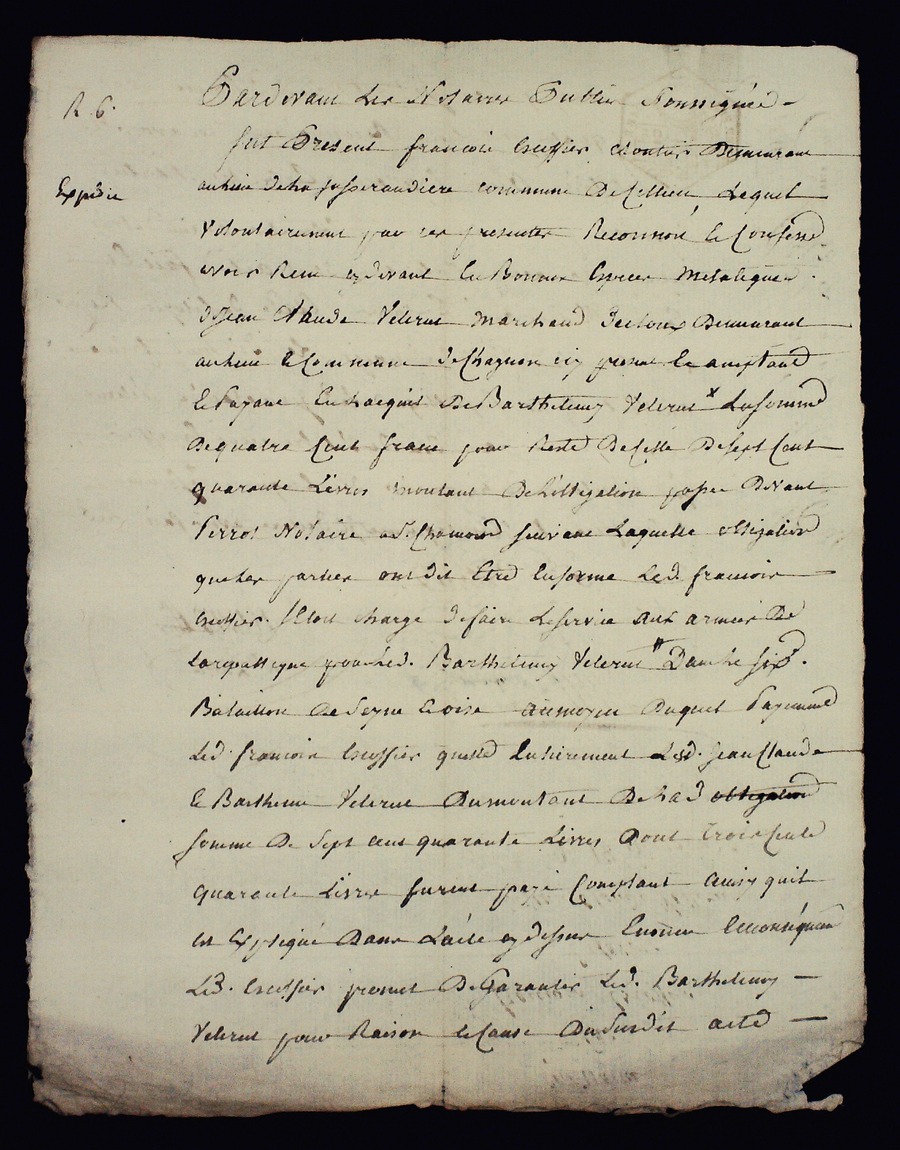 R 6.
Expédié
Pardevant Les Notaires Public Soussignés -
fut Présent francois Creffier Demeurant
au lieu de la josserandiere commune De Cellieu Lequel
Volontairement par ces presentes Reconnoit Et Confesse
avoir Reçu cydevant En Bonnes Especes Metaliques
de Jean Claude Velerut Marchand Demeurant
au lieu Et Commune de Chagnon icy present Et acceptand
Et Payant En L'acquit De Barthelemy Velerut x La somme
De quatre Cent franc pour Reste De Celle De Sept Cent
quarante Livres montant De L'obligation passé Devant
Perrot Notaire a St Chamond suivant Laquelle obligation
que les parties ont dit Etre En forme Led. francois
Creffier. s'Etoit chargé de faire Le service aux armées De
La republique pour Led. Barthelemy Velerut " Dans Le six.
Bataillon de Seyne Et oise au moyen Duquel Payement
Led. francois Creffier quitte Entierement Lesd. Jean Claude
Et Barthemi Velerut Du montant De Lad obligation
somme De Sept cent quarante Livres Dont trois cents
quarante Livres furent payé Comptant ainsy quil
Est Expliqué Dans L'acte cy dessus Enoncé En conséquence
Led. Creffier promet De Garantir Led. Barthelemy —
Velerut pour Raison Et Cause Du susdit acte —